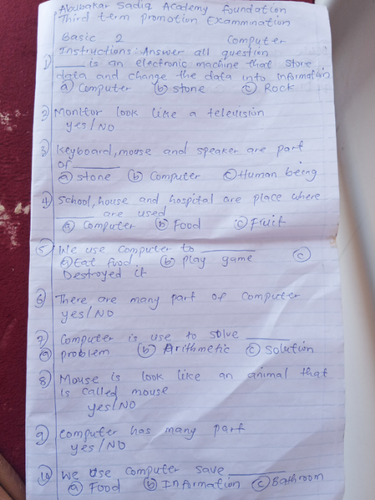 Abubakar Sadiq Academy Foundation
Third term promotion Examination
Basic 2 Computer
Instructions: Answer all question
1) ____ is an electronic machine that store
data and change the data into information
(a) Computer (b) stone (c) Rock
2 Monitor look like a television
yes/NO
3 Keyboard, mouse and speaker are part
of ____
(a) stone (b) Computer (c) Human being
4 School, house and hospital are place where
____ are used
(a) Computer (b) Food (c) Fruit
5 We use Computer to ____
(a) Eat food (b) play game (c)
Destroyed it
6 There are many part of Computer
yes/NO
7 Computer is use to solve ____
(a) problem (b) Arithmetic (c) Solution
8 Mouse is look like an animal that
is called mouse
yes/NO
9 Computer has many part
yes/NO
10 We use Computer save ____
(a) Food (b) Information (c) Bathroom